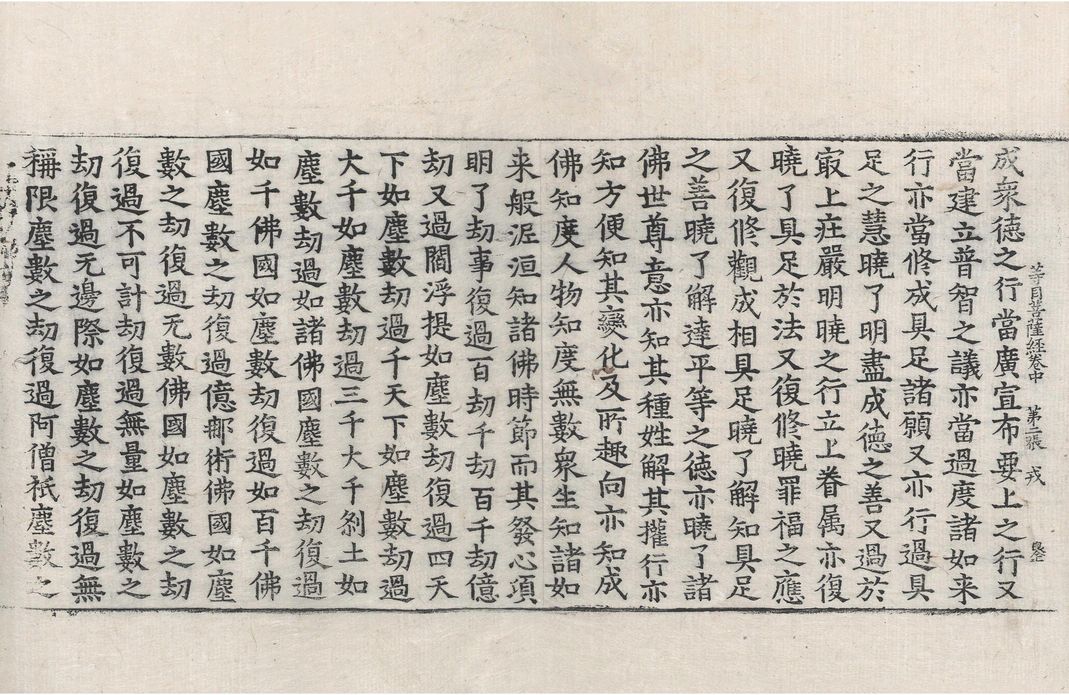 等目菩薩経卷中 第二張 戎
成衆德之行當廣宣布要上之行又
當建立普智之議亦當過度諸如来
行亦當修成具足諸願又亦行過具
足之慧曉了明盡成德之善又過於
㝡上庄嚴明曉之行立上眷属亦復
曉了具足於法又復修曉罪福之應
又復修觀成相具足曉了解知具足
之善曉了解達平等之德亦曉了諸
佛世尊意亦知其種姓解其權行亦
知方便知其變化及所趣向亦知成
佛知度人物知度無數衆生知諸如
来般泥洹知諸佛時節而其發心項
明了劫事復過百劫千劫百千劫億
劫又過閻浮提如塵數劫復過四天
下如塵數劫過千天下如塵數劫過
大千如塵數劫過三千大千剎土如
塵數劫過如諸佛國塵數之劫復過
如千佛國如塵數劫復過如百千佛
國塵數之劫復過億那術佛國如塵
數之劫復過无數佛國如塵數之劫
復過不可計劫復過無量如塵數之
劫復過无邊際如塵數之劫復過無
稱限塵數之劫復過阿僧祇塵數之